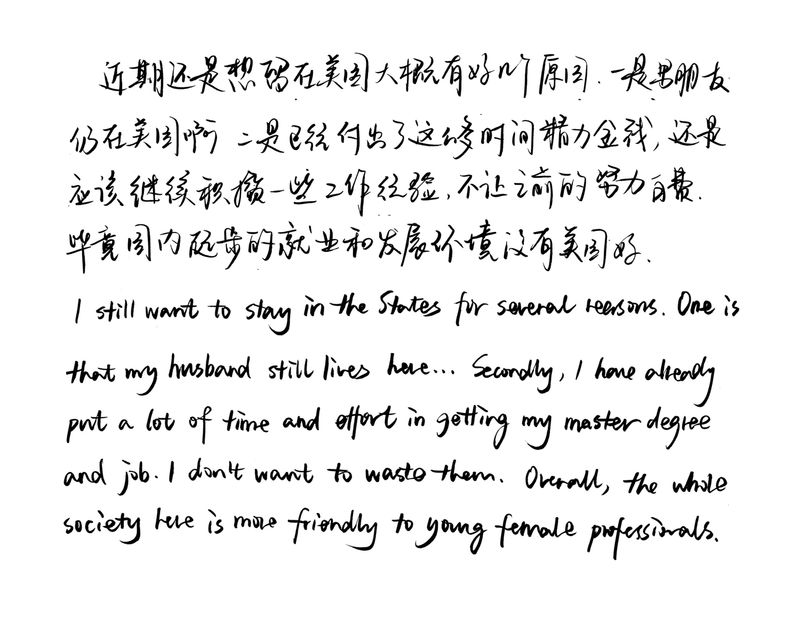 近期还是想留在美国大概有好几个原因. 一是男朋友
仍在美国啊 二是已经付出了这么多时间精力金钱, 还是
应该继续积攒一些工作经验, 不让之前的努力白费.
毕竟国内起步的就业和发展环境没有美国好.
I still want to stay in the States for several reasons. One is
that my husband still lives here... Secondly, I have already
put a lot of time and effort in getting my master degree
and job. I don't want to waste them. Overall, the whole
society here is more friendly to young female professionals.